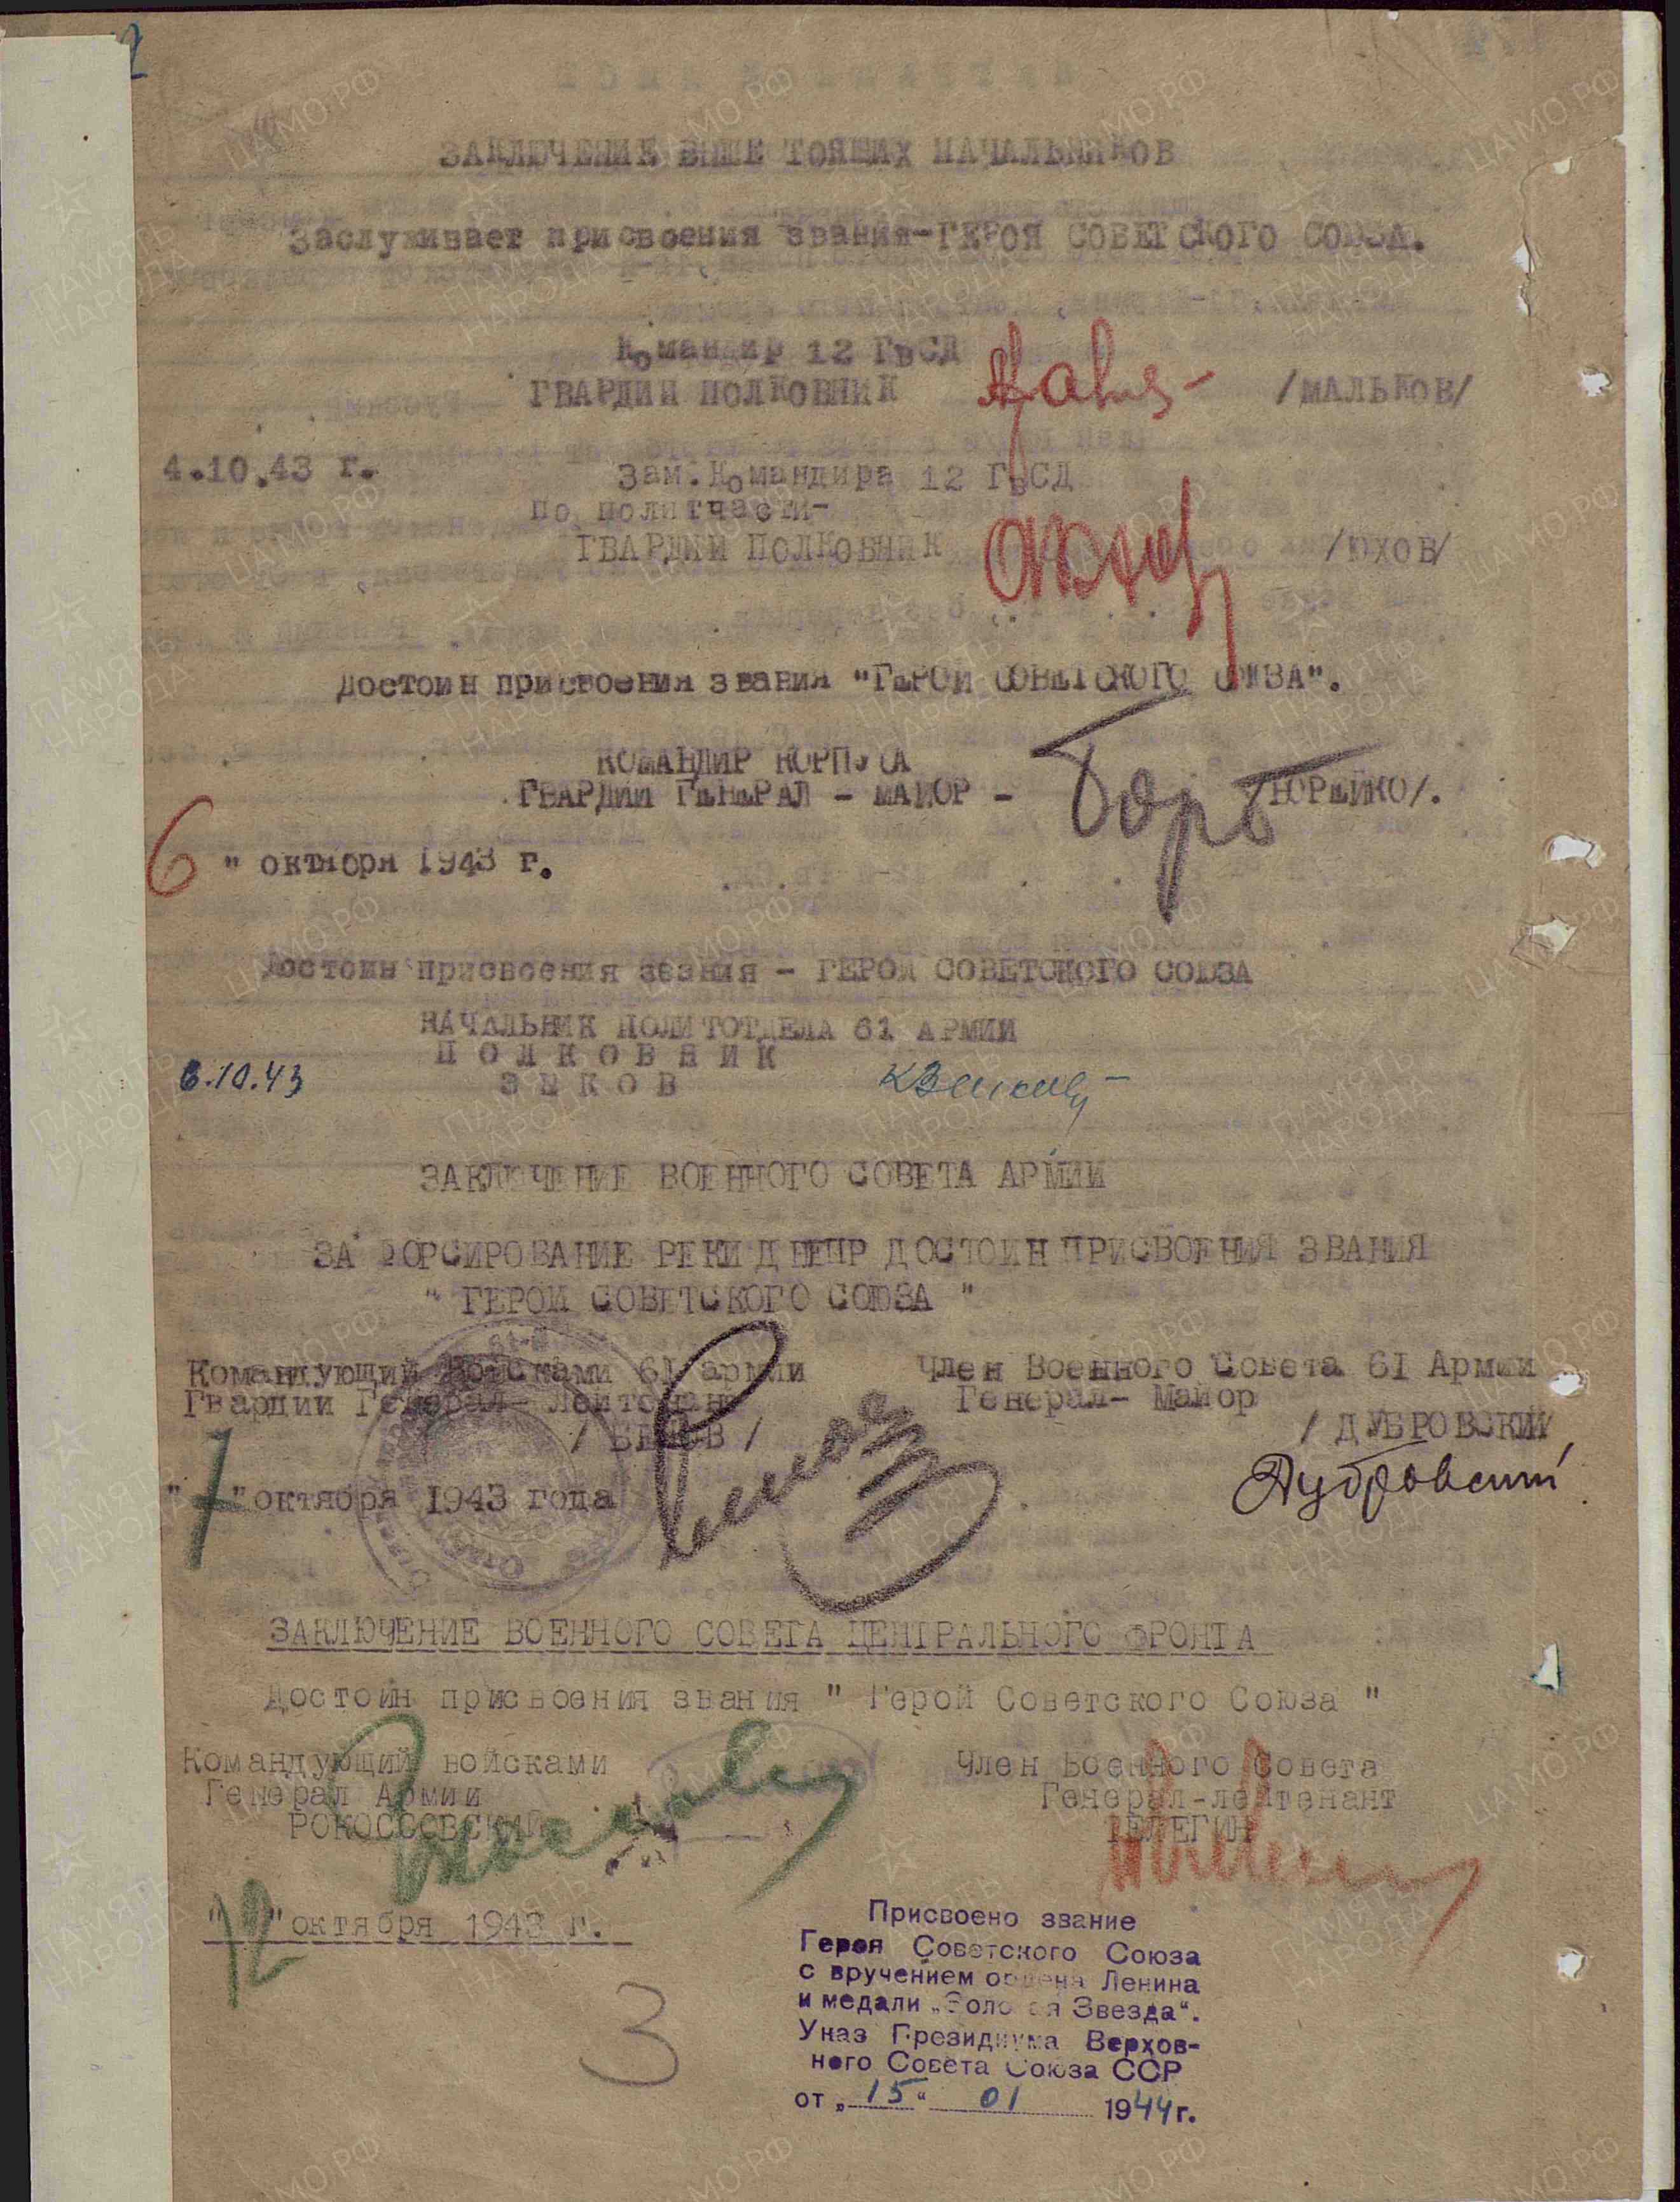 ЗАКЛЮЧЕНИЕ ВЫШЕ ТОЯЩИХ НАЧАЛЬНИКОВ
Заслуживает присвоения звания-ГЕРОЯ СОВЕТСКОГО СОЮЗА.
Командир 12 ГвСД
ГВАРДИИ ПОЛКОВНИК /МАЛЬКОВ/
4.10.43 г.
Зам.Командира 12 ГвСД
по политчасти-
ГВАРДИИ ПОЛКОВНИК /ЮХОВ/
Достоин присвоения звания "ГЕРОЙ СОВЕТСКОГО СОЮЗА".
КОМАНДИР КОРПУСА
ГВАРДИИ ГЕНЕРАЛ - МАЙОР - /БОРЕЙКО/.
6 " октября 1943 г.
Достоин присвоения звания - ГЕРОЙ СОВЕТСКОГО СОЮЗА
НАЧАЛЬНИК ПОЛИТОТДЕЛА 61 АРМИИ
ПОЛКОВНИК
ЗЫКОВ
6.10.43
ЗАКЛЮЧЕНИЕ ВОЕННОГО СОВЕТА АРМИИ
ЗА ФОРСИРОВАНИЕ РЕКИ ДНЕПР ДОСТОИН ПРИСВОЕНИЯ ЗВАНИЯ
" ГЕРОЙ СОВЕТСКОГО СОЮЗА "
Командующий Войсками 61 армии
Гвардии Генерал- Лейтенант
/ БЕЛОВ /
Член Военного Совета 61 Армии
Генерал- Майор
/ ДУБРОВСКИЙ/
Дубровский
"7"октября 1943 года
ЗАКЛЮЧЕНИЕ ВОЕННОГО СОВЕТА ЦЕНТРАЛЬНОГО ФРОНТА
Достоин присвоения звания " Герой Советского Союза "
Командующий войсками
Генерал Армии
РОКОССОВСКИЙ
Член Военного Совета
Генерал-лейтенант
ТЕЛЕГИН
"12"октября 1943 г.
3
Присвоено звание
Героя Советского Союза
с вручением ордена Ленина
и медали „Золотая Звезда“.
Указ Президиума Верхов-
ного Совета Союза ССР
от „15“ 01 1944г.
ПАМЯТЬ НАРОДА
ЦАМО.РФ